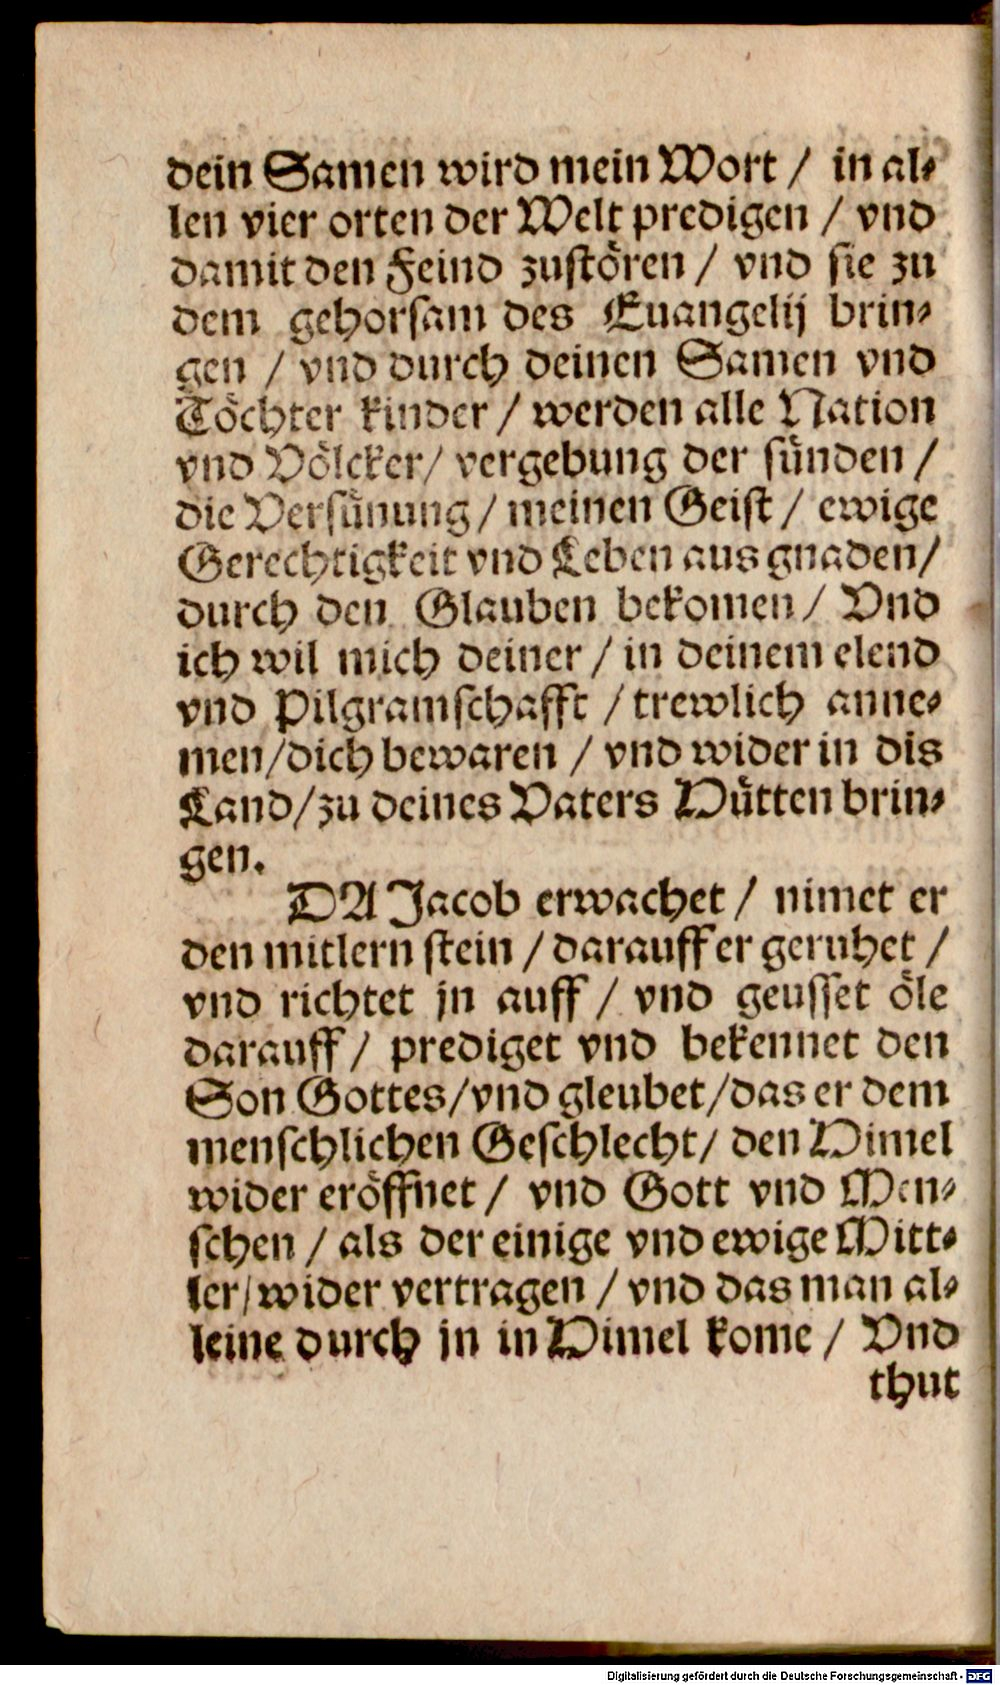 dein Samen wird mein Wort / in al⸗
len vier orten der Welt predigen / vnd
damit den Feind zustören / vnd sie zu
dem gehorsam des Euangelij brin⸗
gen / vnd durch deinen Samen vnd
Töchter kinder / werden alle Nation
vnd Völcker / vergebung der sünden /
die Versünung / meinen Geist / ewige
Gerechtigkeit vnd Leben aus gnaden /
durch den Glauben bekomen / Vnd
ich wil mich deiner / in deinem elend
vnd Pilgramschafft / trewlich anne⸗
men / dich bewaren / vnd wider in dis
Land / zu deines Vaters Hütten brin⸗
gen.
DA Jacob erwachet / nimet er
den mitlern stein / darauff er geruhet /
vnd richtet jn auff / vnd geusset öle
darauff / prediget vnd bekennet den
Son Gottes / vnd gleubet / das er dem
menschlichen Geschlecht / den Himel
wider eröffnet / vnd Gott vnd Men⸗
schen / als der einige vnd ewige Mitt⸗
ler / wider vertragen / vnd das man al⸗
leine durch jn in Himel kome / Vnd
thut
Digitalisierung gefördert durch die Deutsche Forschungsgemeinschaft - DFG